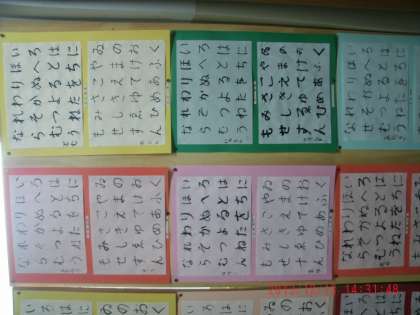 いろはに
ほへとち
りぬるを
わかよた
れそつね
ならむう
ゐのおく
やまけふ
こえてあ
さきゆめ
みしゑひ
もせすん
いろはに
ほへとち
りぬるを
わかよた
れそつね
ならむう
ゐのおく
やまけふ
こえてあ
さきゆめ
みしゑひ
もせすん
いろはに
ほへとち
りぬるを
わかよた
れそつね
ならむう
いろはに
ほへとち
りぬるを
わかよた
れそつね
ならむう
ゐのおく
やまけふ
こえてあ
さきゆめ
みしゑひ
もせすん
いろはに
ほへとち
りぬるを
わかよた
れそつね
ならむう
ゐのおく
やまけふ
こえてあ
さきゆめ
みしゑひ
もせすん
いろはに
ほへとち
りぬるを
わかよた
れそつね
ならむう
14:31:48